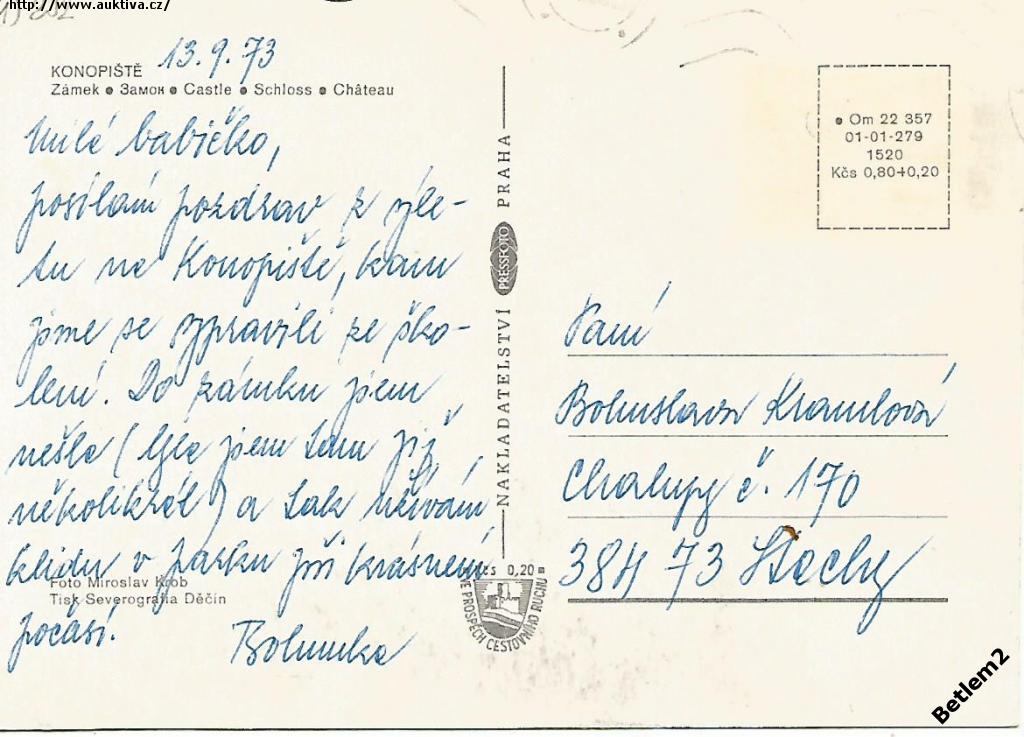 http://www.auktiva.cz/
13.9.73
KONOPIŠTĚ
Zámek ● Замок ● Castle ● Schloss ● Château
Milá babičko,
posílám pozdrav z výle-
tu na Konopiště, kam
jsme se vypravili ze ško-
lení. Do zámku jsem
nešla (byla jsem tam již
několikrát) a tak užívám
klidu v parku při krásném
počasí.
Bohunka
Foto Miroslav Krob
Tisk Severografia Děčín
NAKLADATELSTVÍ PRESSFOTO PRAHA
Kčs 0,20
VE PROSPĚCH CESTOVNÍHO RUCHU
● Om 22 357
01-01-279
1520
Kčs 0,80+0,20
Paní
Bohuslava
Chalupy č. 170
384 73 Stachy
Betlem2